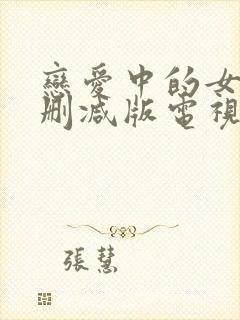 戀愛中的女
刪減版電視
張慧